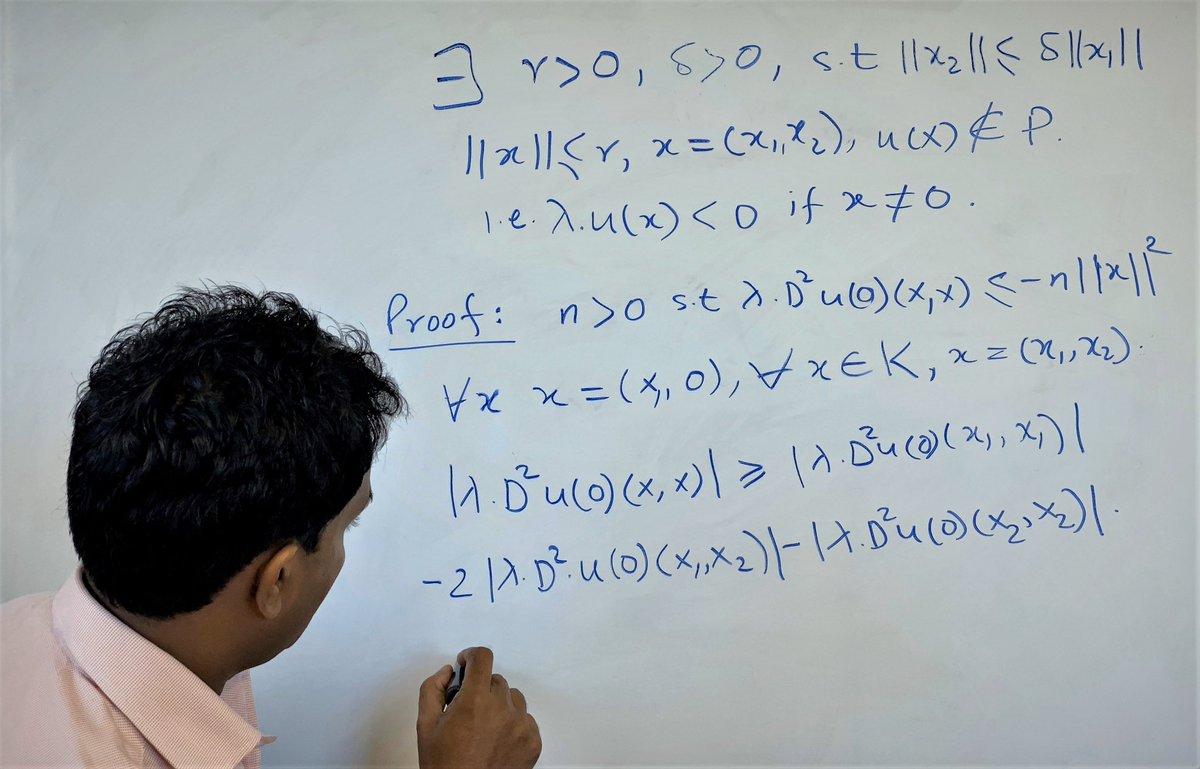 ∃ r>0, δ>0, s.t ||x₂||≤ δ||x₁||
||x||≤r, x=(x₁,x₂), u(x)∉ P.
i.e. λ.u(x)<0 if x≠0.
Proof: n>0 s.t λ.D²u(0)(x,x) ≤-n||x||²
∀x x=(x₁,0), ∀x∈K, x=(x₁,x₂).
|λ.D²u(0)(x,x)| ≥ |λ.D²u(0)(x₁,x₁)|
-2|λ.D².u(0)(x₁,x₂)|-|λ.D²u(0)(x₂,x₂)|.